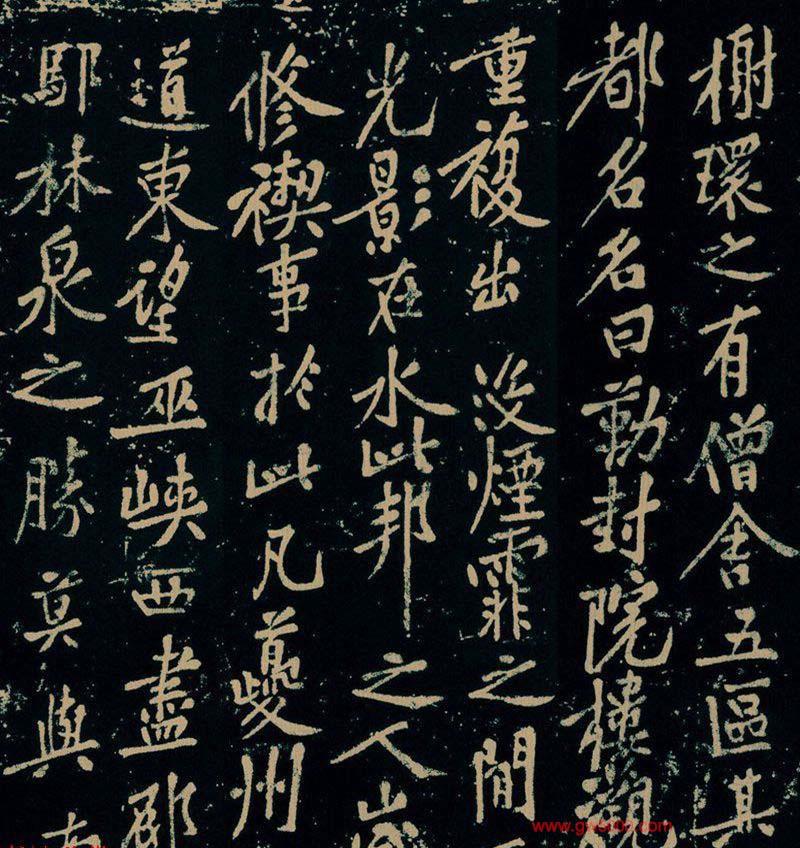 榭環之有僧舍五區其
都名名曰勒封院樓觀
重複出沒煙霏之閒
光影在水此邦之人歲
修禊事於此凡夔州
道東望巫峽西盡
鄢林泉之勝莫與